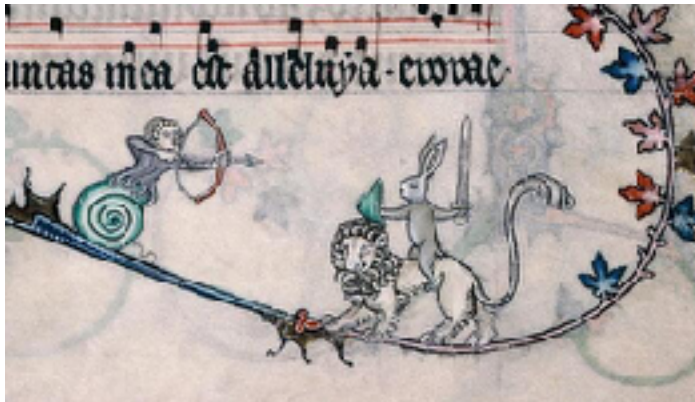 uncas mea est alleluya · evovae·